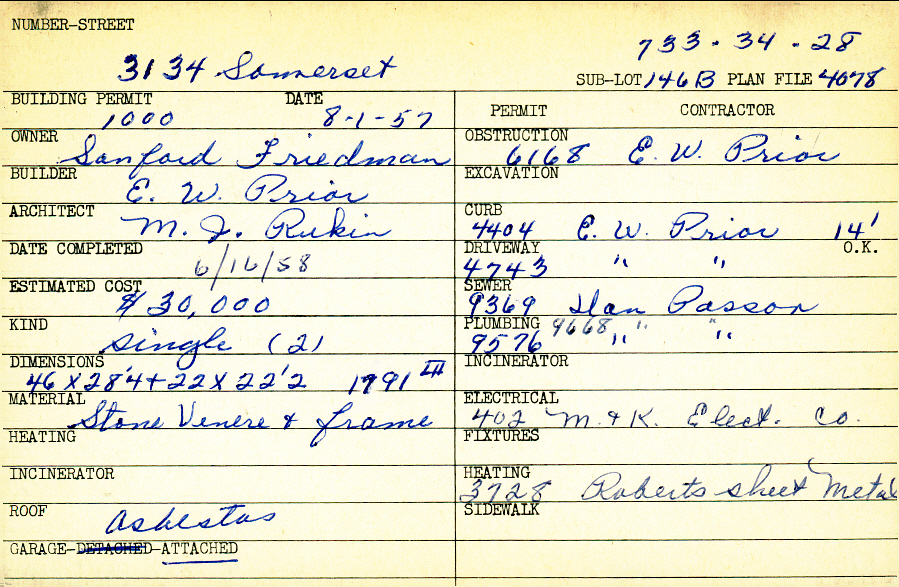 NUMBER-STREET
733-34-28
3134 Somerset
SUB-LOT 146B PLAN FILE 4078
BUILDING PERMIT DATE
1000 8-1-57
OWNER
Sanford Friedman
BUILDER
E. W. Prior
ARCHITECT
M. J. Rukin
DATE COMPLETED
6/16/58
ESTIMATED COST
$30,000
KIND
single (2)
DIMENSIONS
46 x 28'4 + 22 x 22'2 1791 III
MATERIAL
Stone Venere & frame
HEATING
INCINERATOR
ROOF
asbestos
GARAGE-DETACHED-ATTACHED
PERMIT CONTRACTOR
OBSTRUCTION
6168 E. W. Prior
EXCAVATION
CURB
4404 E. W. Prior 14'
DRIVEWAY O.K.
4743 " "
SEWER
9369 Dan Passor
PLUMBING 9668 " "
9576 " "
INCINERATOR
ELECTRICAL
402 M. & K. Elect. Co.
FIXTURES
HEATING
3728 Roberts sheet Metal
SIDEWALK